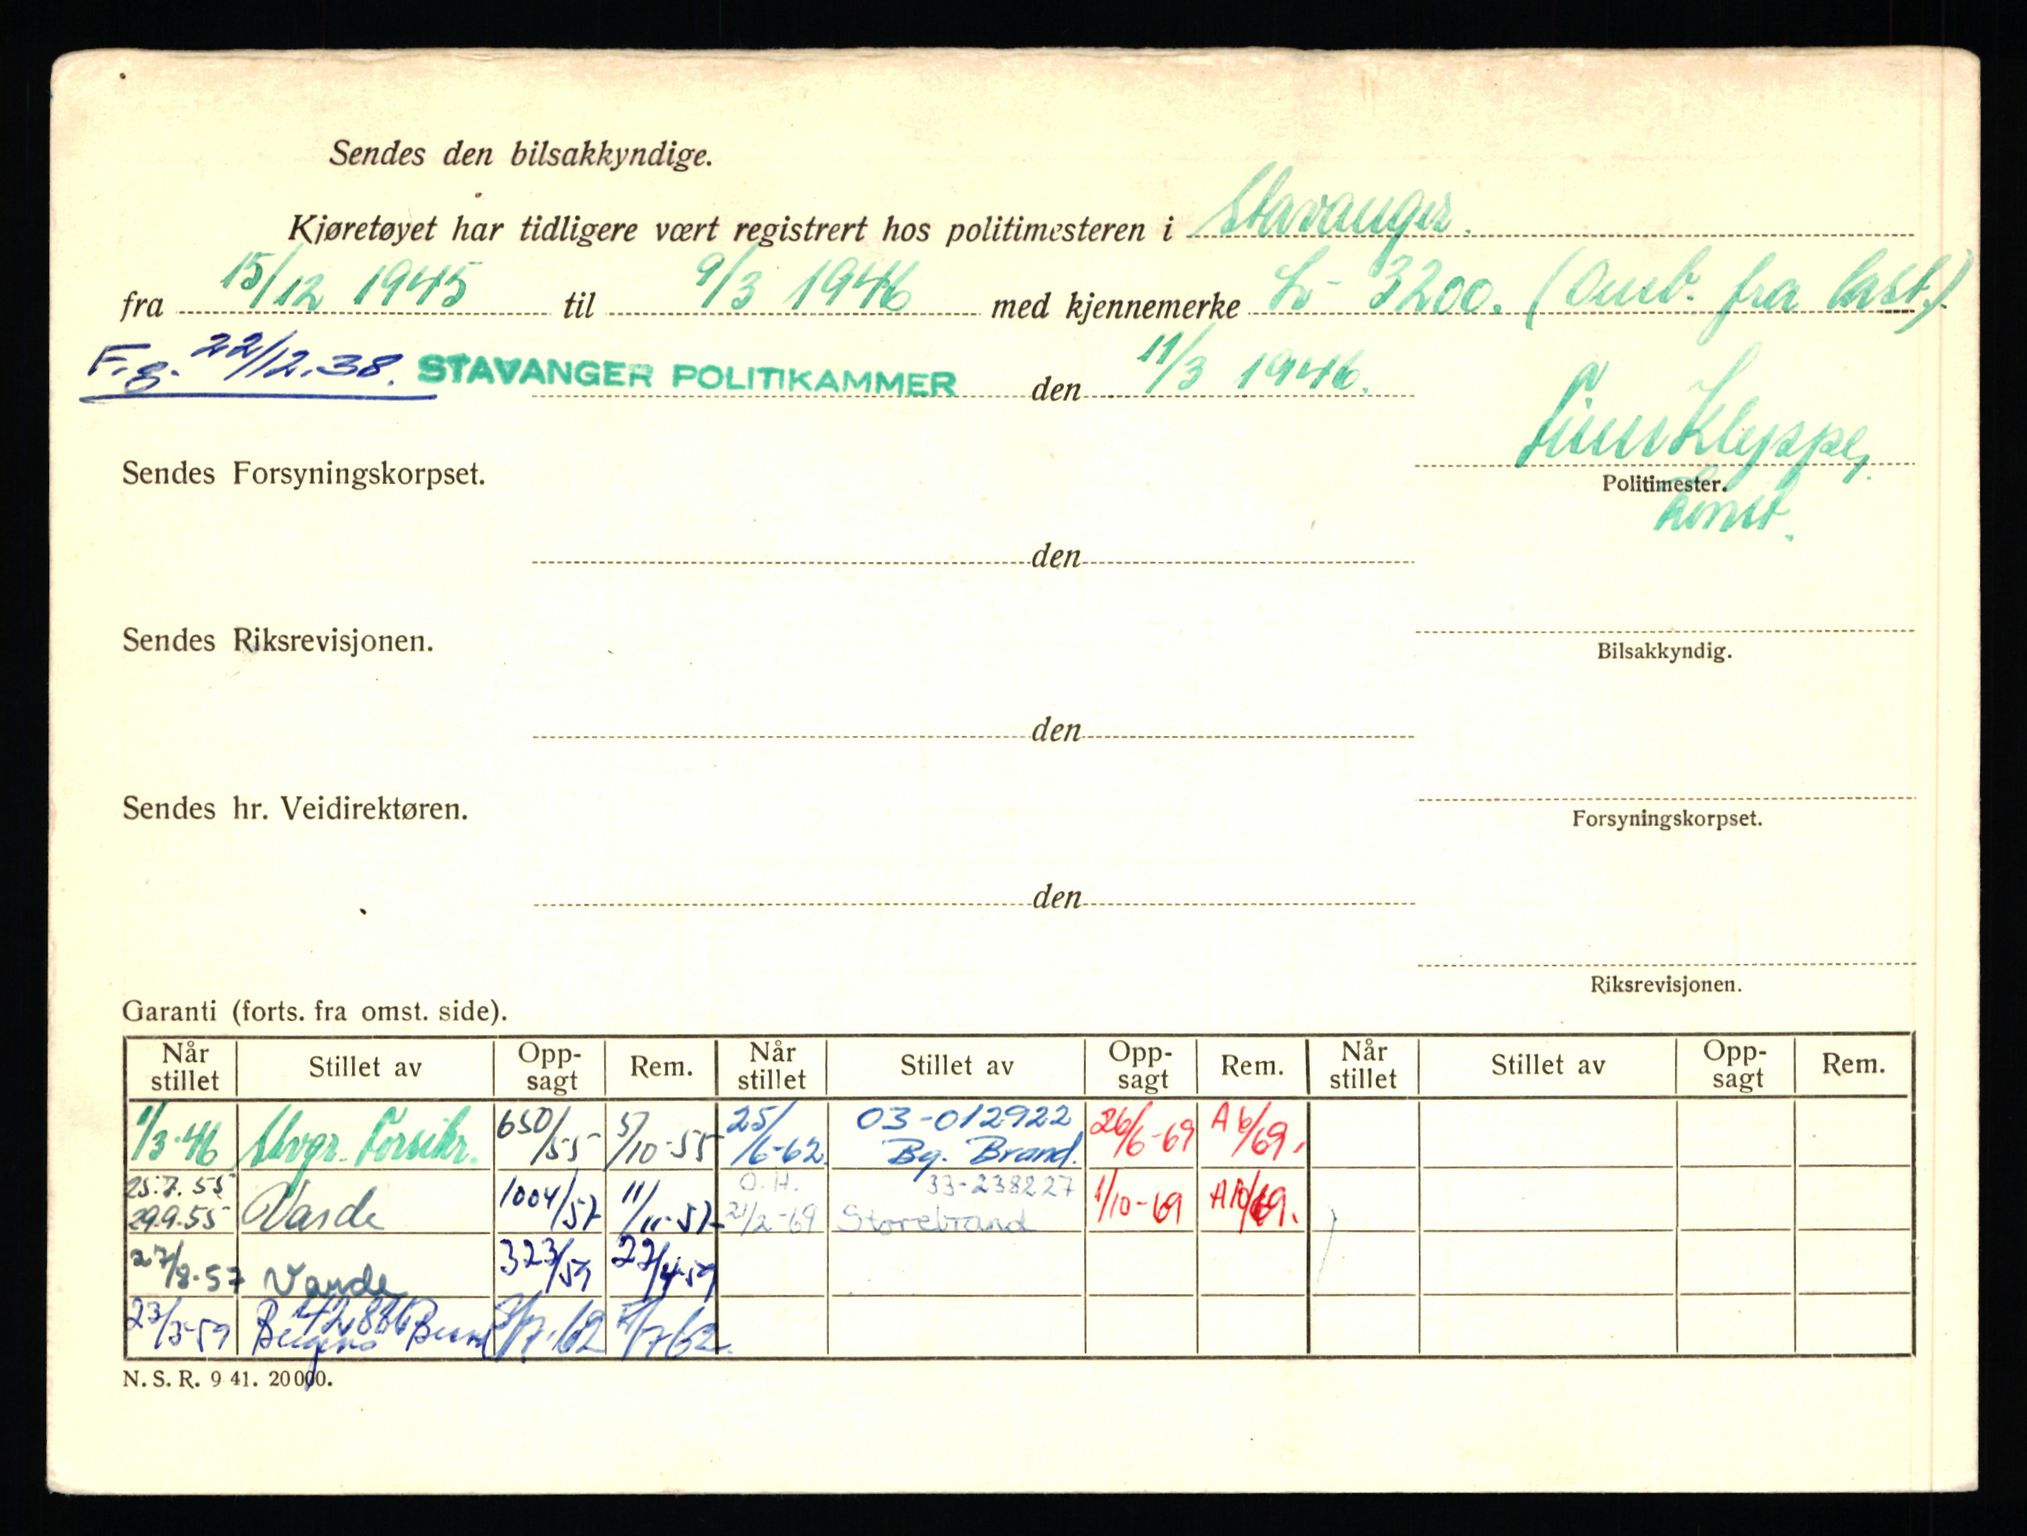 Sendes den bilsakkyndige.
Kjøretøyet har tidligere vært registrert hos politimesteren i Stavanger.
fra 15/12 1945 til 9/3 1946 med kjennemerke L- 3200. (Omb. fra last.)
F.g. 22/12.38. STAVANGER POLITIKAMMER den 11/3 1946.
Finn Kleppe,
Sendes Forsyningskorpset.
Politimester.
konst.
den
Sendes Riksrevisjonen.
Bilsakkyndig.
den
Sendes hr. Veidirektøren.
Forsyningskorpset.
den
Riksrevisjonen.
Garanti (forts. fra omst. side).
Når stillet Stillet av Opp-sagt Rem. Når stillet Stillet av Opp-sagt Rem. Når stillet Stillet av Opp-sagt Rem.
1/3-46 Stvgr. Forsikr. 650/55 5/10-55 25/6-62. 03-012922 Bg. Brand. 26/6-69 A 6/69.
25.7.55 29.9.55 Varde 1004/57 11/11-57 O.H. 21/2-69 33-238227 Storebrand 1/10-69 A10/69.
27/8-57 Varde 323/59 22/4-59
23/3-59 142886 Bergens Brand /7-62 /7/62.
N. S. R. 9 41. 20000.